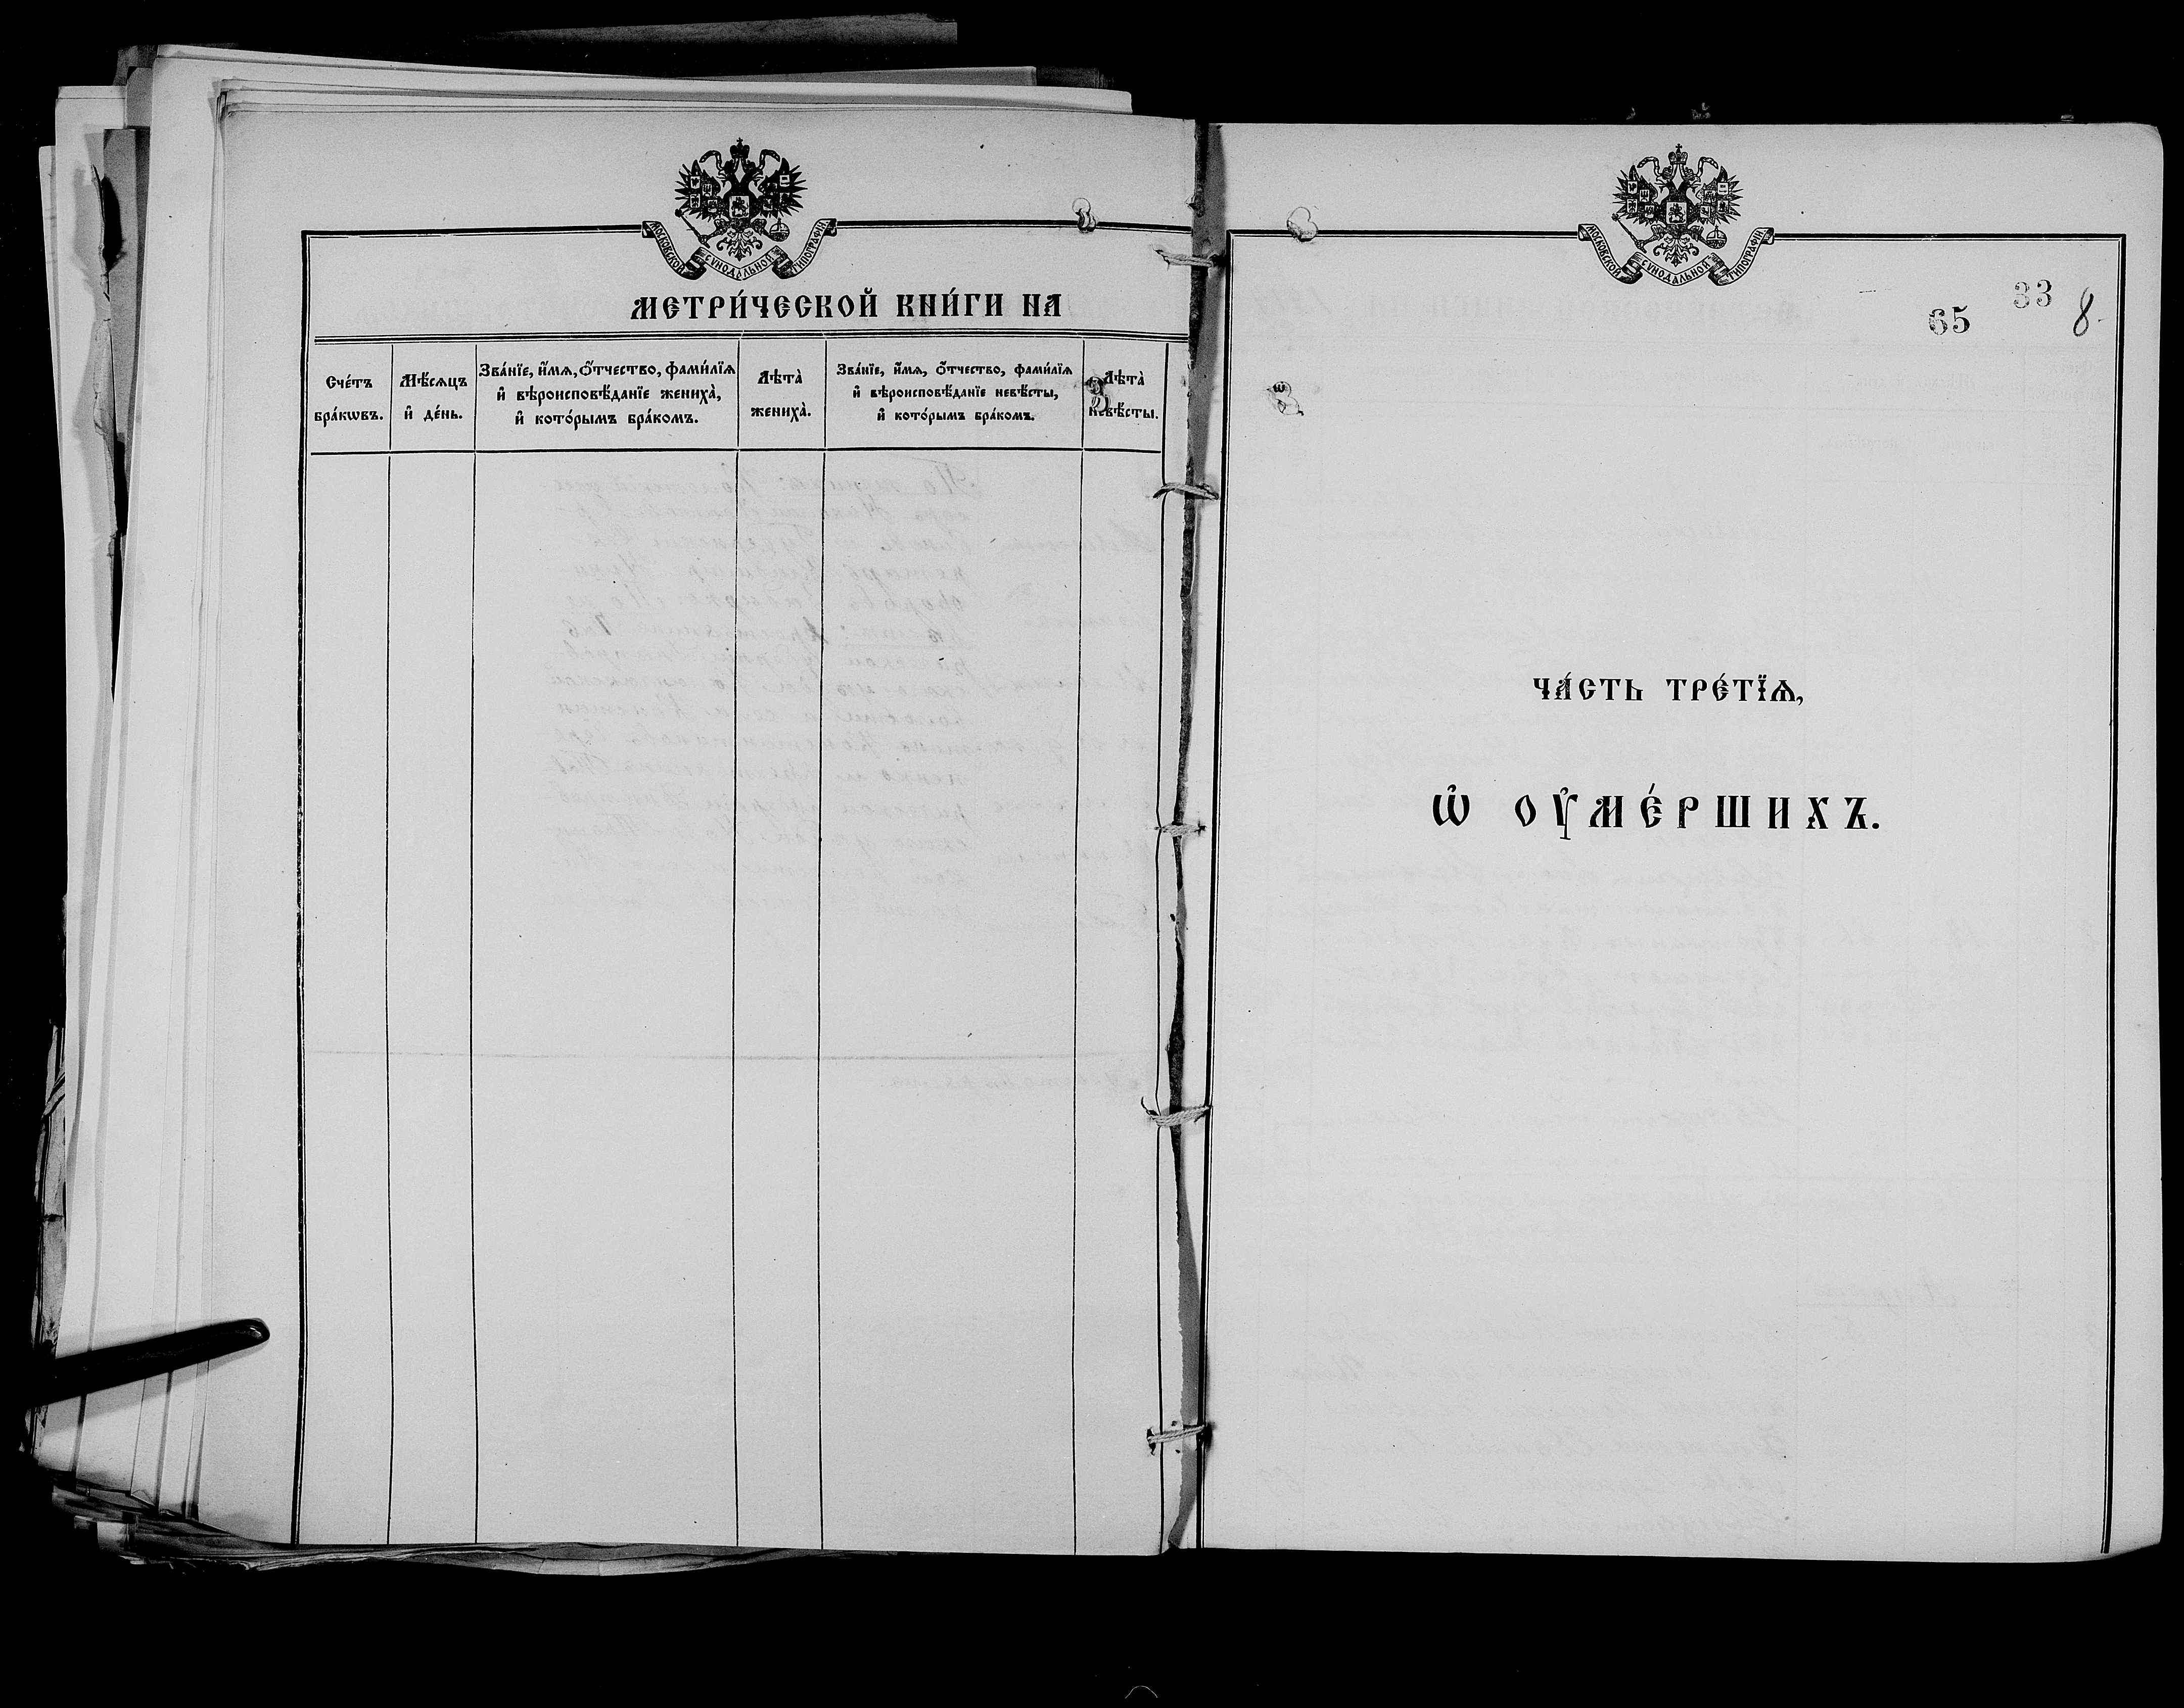 МОСКОВСКОЙ СѴНОДАЛЬНОЙ ТИПОГРАФІИ
МЕТРИ́ЧЕСКОЙ КНИ́ГИ НА
Сче́тъ бра́кѡвъ.
Мѣ́сяцъ и҆ де́нь.
Зва́нїе, и҆́мѧ, ѻ҆́тчество, фами́лїѧ
и҆ вѣроисповѣ́данїе жениха̀,
и҆ кото́рымъ бра́комъ.
Лѣта̀
жениха̀.
Зва́нїе, и҆́мѧ, ѻ҆́тчество, фами́лїѧ
и҆ вѣроисповѣ́данїе невѣ́сты,
и҆ кото́рымъ бра́комъ.
Лѣта̀
невѣ́сты.
МОСКОВСКОЙ СѴНОДАЛЬНОЙ ТИПОГРАФІИ
65
33
8
ЧА́СТЬ ТРЕ́ТЇѦ,
Ѡ҆ ОУ҆МЕ́РШИХЪ.